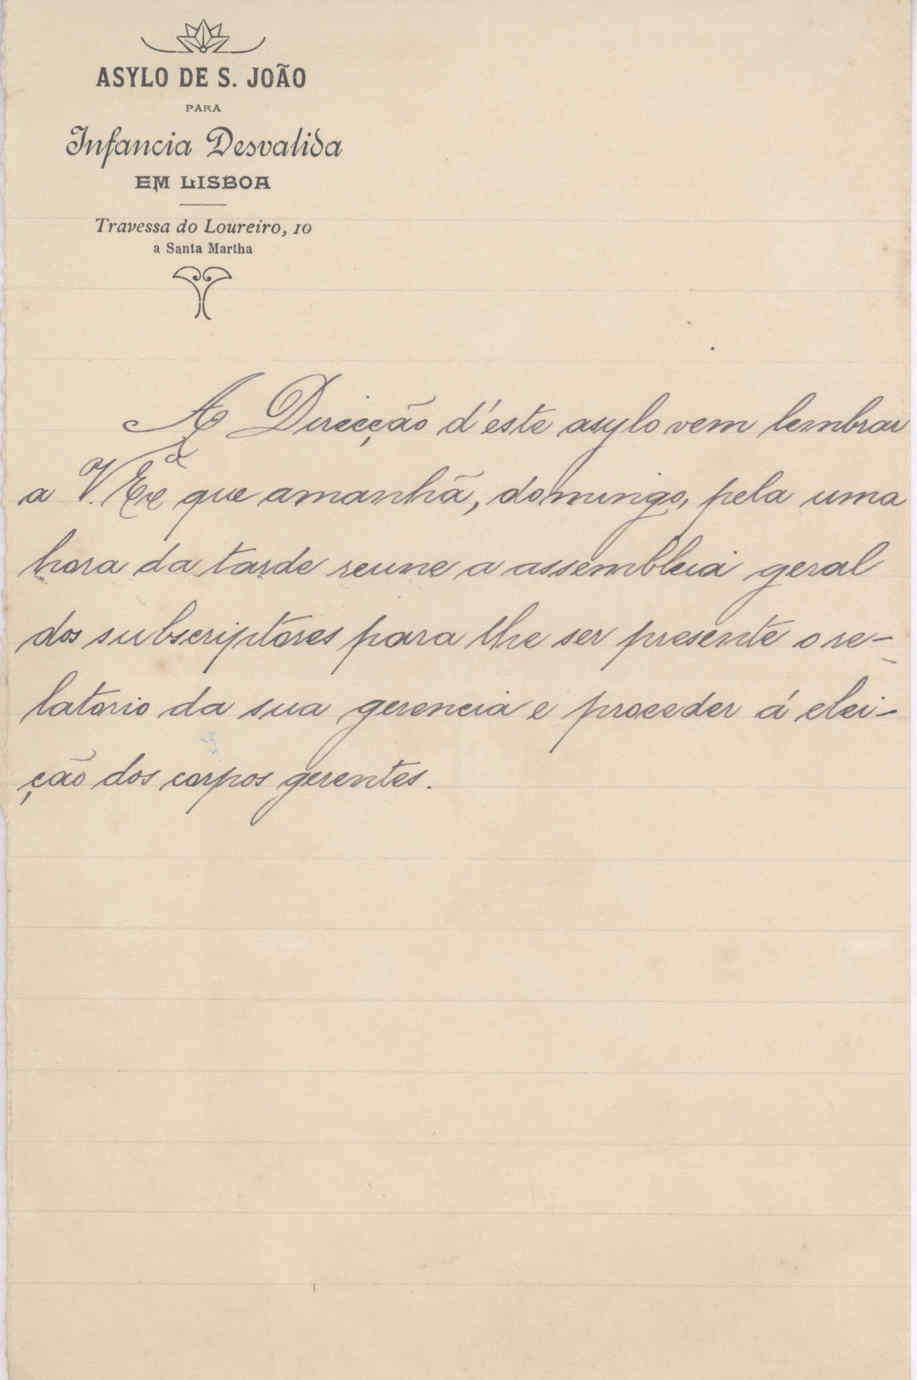 ASYLO DE S. JOÃO
PARA
Infancia Desvalida
EM LISBOA
Travessa do Loureiro, 10
a Santa Martha
A Direcção d'este asylo vem lembrar
a V. Exª que amanhã, domingo, pela uma
hora da tarde reune a assembleia geral
dos subscriptores para lhe ser presente o re-
latorio da sua gerencia e proceder á elei-
ção dos corpos gerentes.